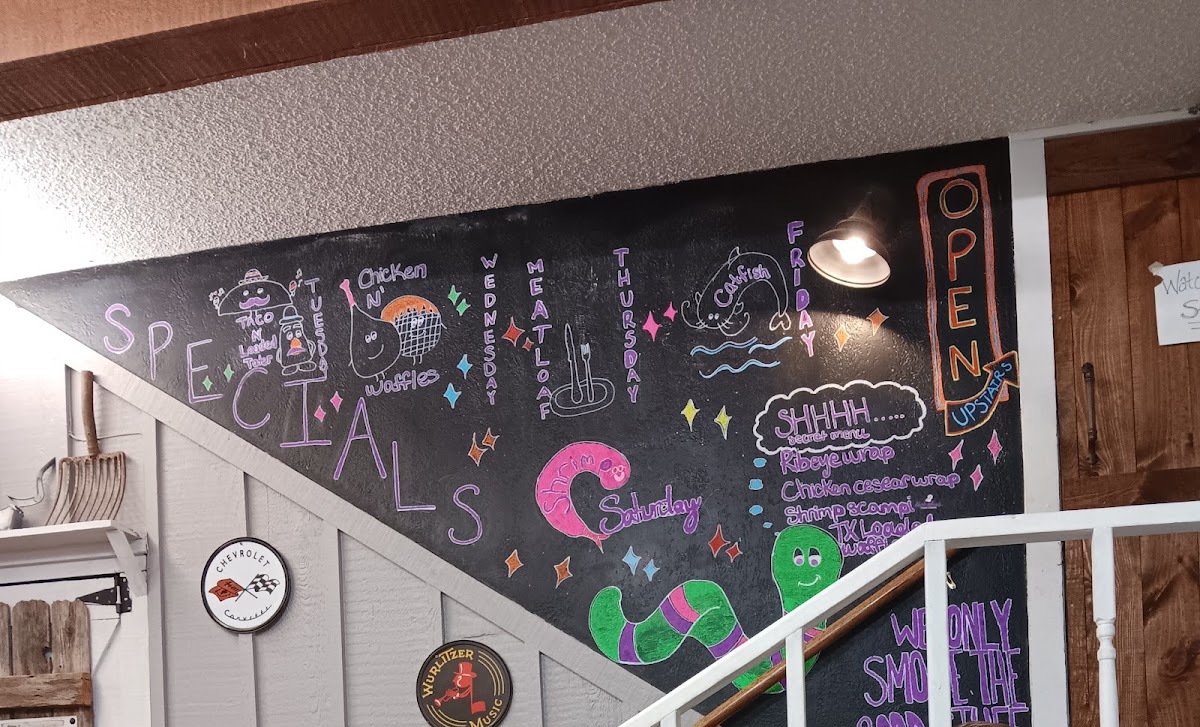 SPECIALS
TACO
N'
Loaded
Tater
TUESDAY
Chicken
N'
Waffles
WEDNESDAY
MEATLOAF
THURSDAY
Catfish
FRIDAY
OPEN
UPSTAIRS
SHHHH.....
secret menu
Ribeye wrap
Chicken cesear wrap
Shrimp scampi
TX Loaded
Shrimp
Saturday
WE ONLY
SMOKE THE
GOOD STUFF
CHEVROLET
Corvette
WURLITZER
MUSIC